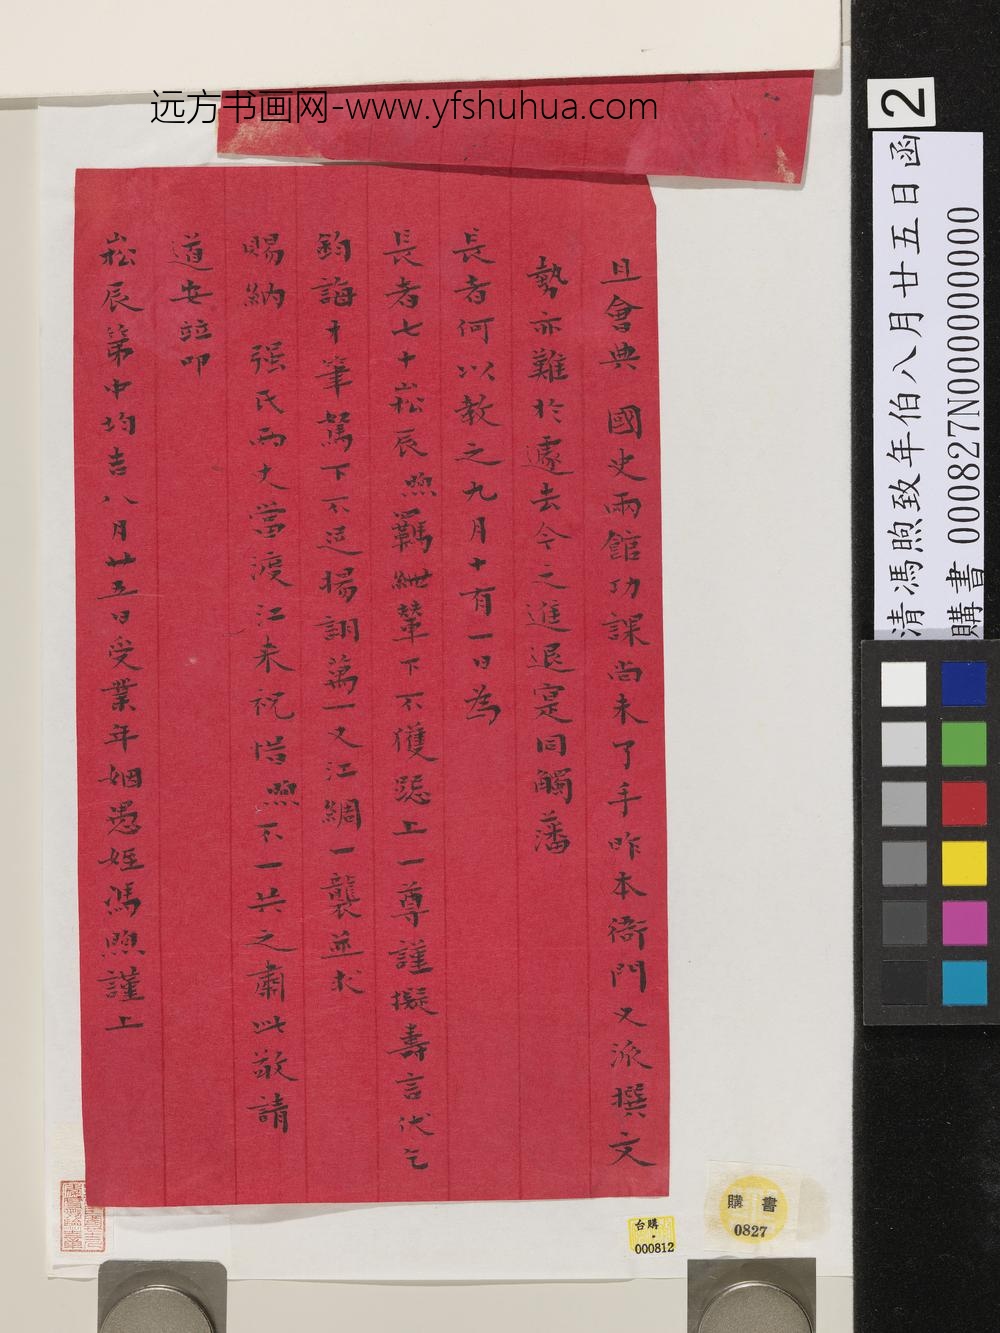 远方书画网-www.yfshuhua.com
且會典 國史兩館功課尚未了手昨本衙門又派撰文
勢亦難於遽去今之進退寔同觸藩
長者何以教之九月十有一日為
長者七十崧辰煦羈紲輦下不獲躋上一尊謹擬壽言伏乞
鈞誨才筆駑下不足揚詡萬一又江綢一襲並求
賜納 强民兩丈當渡江來祝惜煦不一共之肅此敬請
道安竝叩
崧辰第中均吉八月廿五日受業年姻愚姪馮煦謹上
2
清馮煦致年伯八月廿五日函
購書 000827N000000000
購書
0827
台購
000812